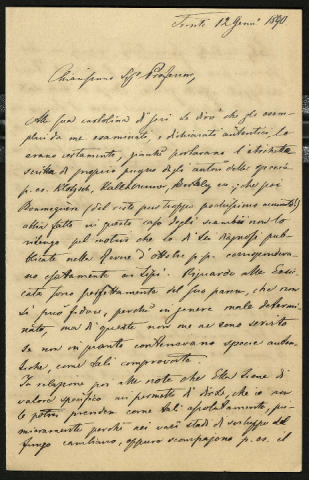 Trento 12 Genn° 1890
Chiarissimo Sig. Professore,
Alla sua cartolina di jeri Le dirò che gli esem-
plari da me esaminati, e dichiarati autentici, lo
erano certamente, giacchè portavano l'etichetta
scritta di proprio pugno dagli autori della specie
p. es. Klotzsch, Kalchbrenner, Berkeley ec; che poi
abbia fatto in questo caso degli scambi non lo
ritengo pel motivo che le di Lei diagnosi pub-
blicate nella Revue
esattamente coi tipi. Riguardo alle Essic-
cata sono perfettamente del suo parere, che non
si può fidare, perchè in genere male determi-
nate, ma di queste non me ne sono servito
se non in quanto contenevano specie auten-
tiche, come tali comprovate.
In relazione poi alle note che Ella tiene di
valore specifico mi permetto di dirle, che io non
le potrei prendere come tali assolutamente, pri-
mieramente perchè nei varii stadi di sviluppo del
fungo cambiano, oppure scompajono p. es. il